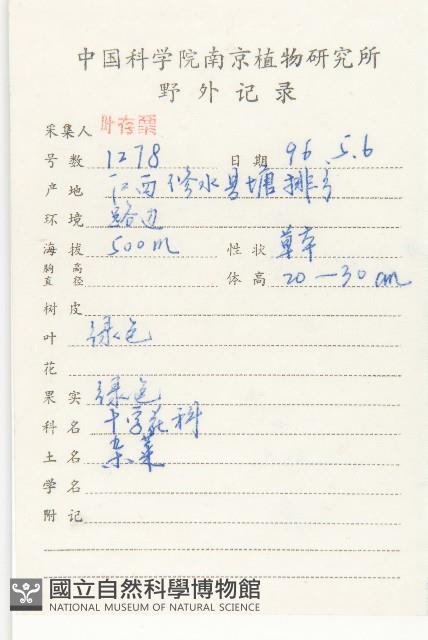 中国科学院南京植物研究所
野外记录
采集人 叶存粟
号数 1278 日期 96.5.6
产地 江西修水县塘排乡
环境 路边
海拔 500m 性状 草本
胸高直径 体高 20—30cm
树皮
叶 绿色
花
果实 绿色
科名 十字花科
土名
学名
附记
國立自然科學博物館
NATIONAL MUSEUM OF NATURAL SCIENCE